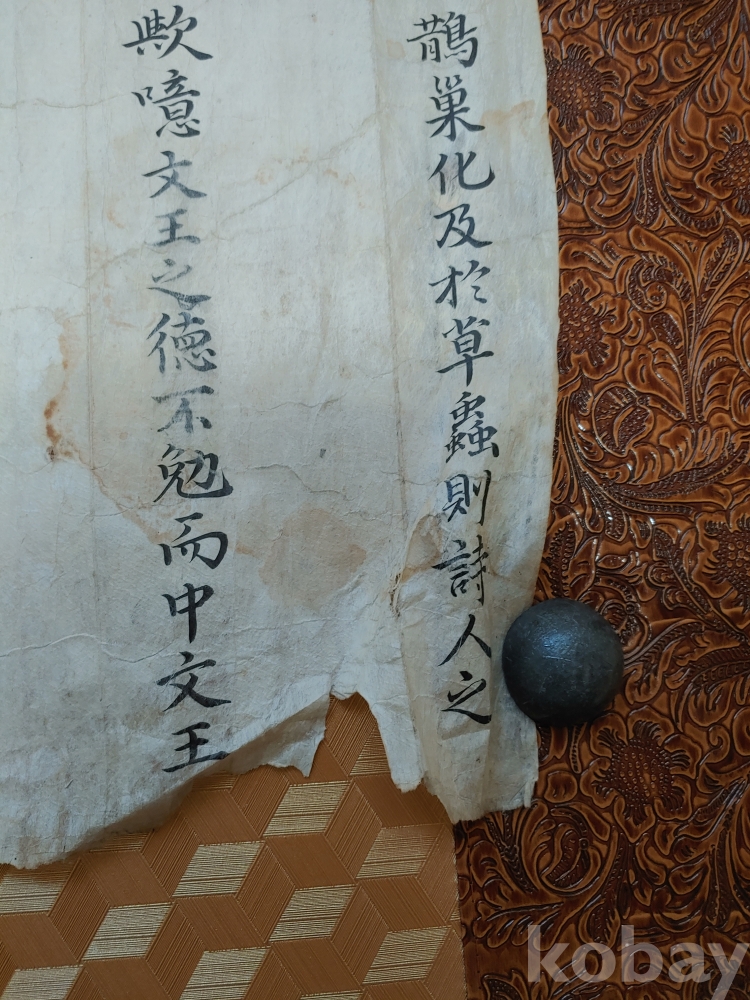 鵲巢化及於草蟲則詩人之
歟噫文王之德不勉而中文王
kobay